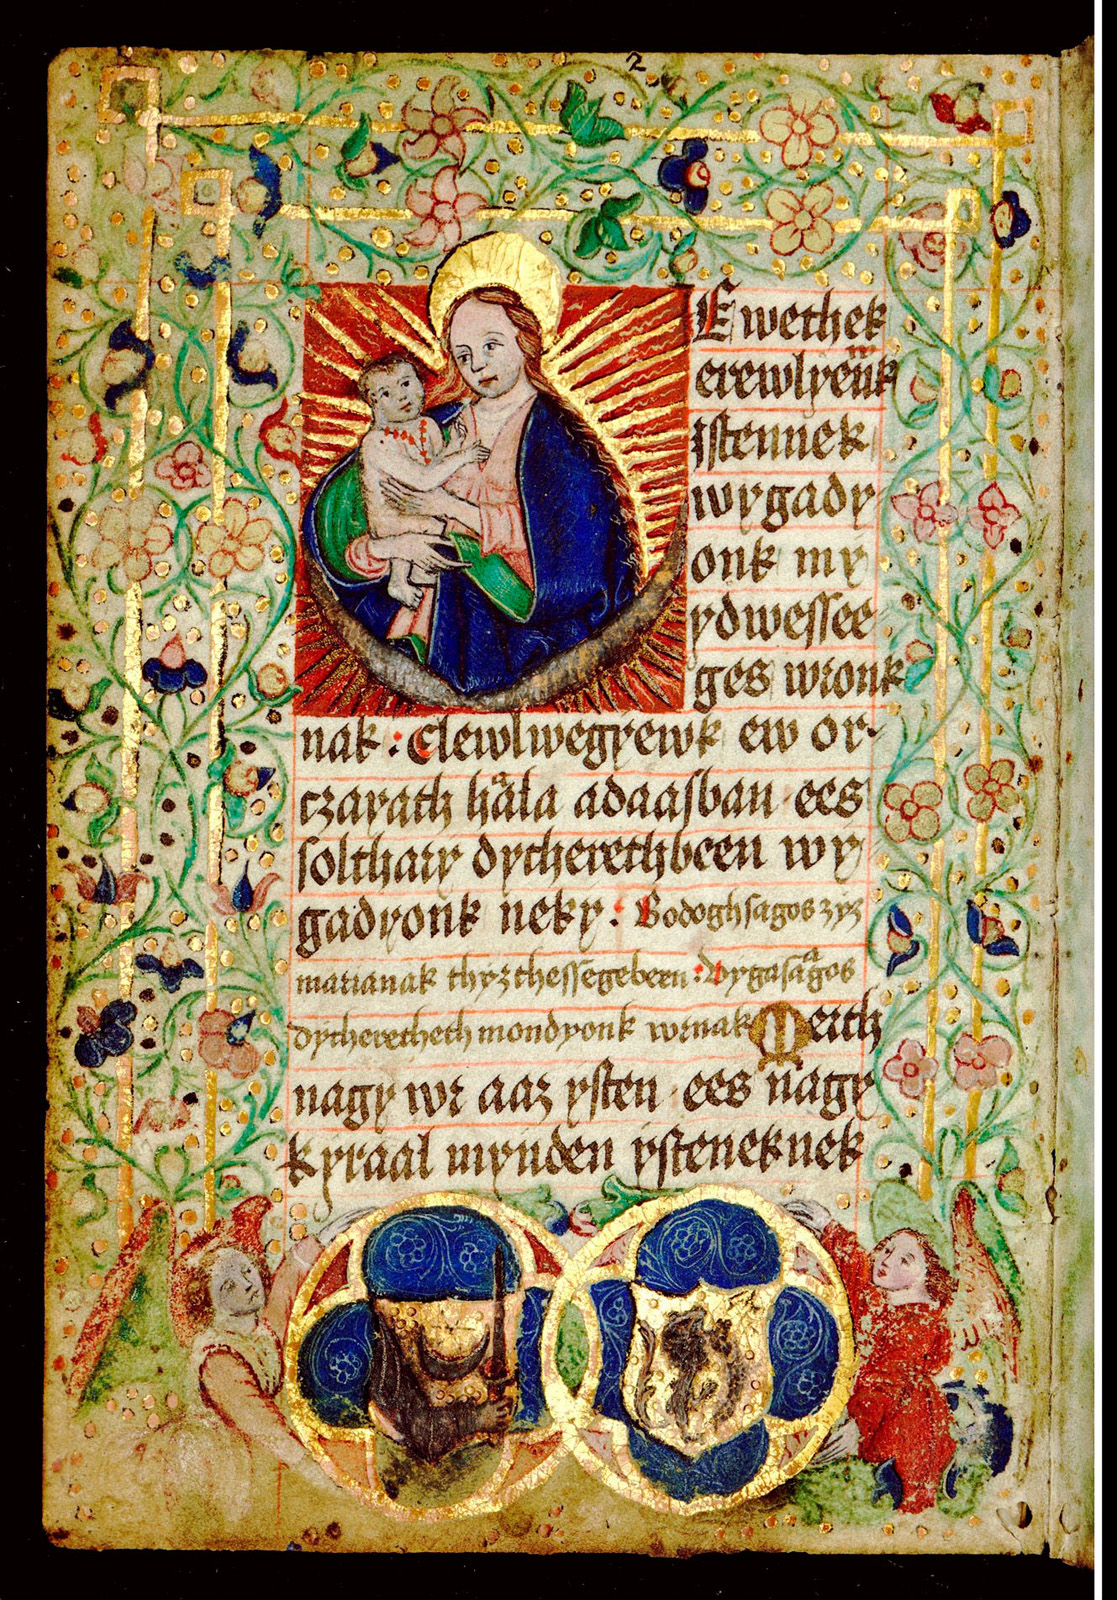 2
Ewethek
erewlyenk
Istennek
wygady
onk my
ydwessee
ges wronk
nak : Elewlwegyewk ew or-
czarath hala adaasban ees
solthary dytherethbeen wy
gadyonk neky : Bodoghsagos zyz
marianak thyzthessegebern : Vygasagos
dytheretheth mondyonk wrnak Merth
nagy wr aaz ysten ees nagy
kyraal mynden ysteneknek